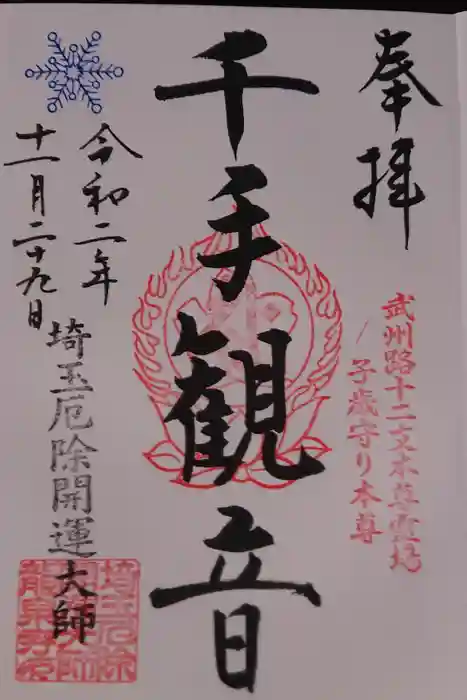 奉拝
武州路十二支本尊霊場
子歳守り本尊
千手観音
令和二年
十一月二十九日
埼玉厄除開運大師